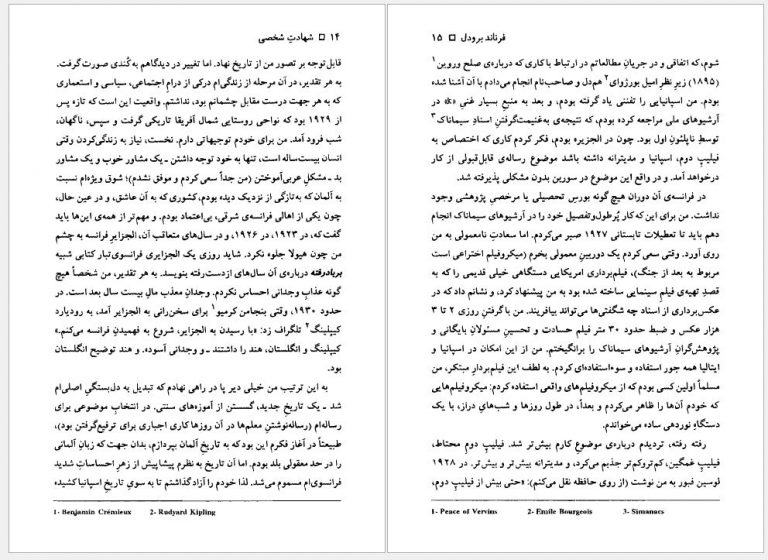 ۱۴ □ شهادتِ شخصی
قابل توجه بر تصور من از تاریخ نهاد. اما تغییر در دیدگاهم به کُندی صورت گرفت.
به هر تقدیر، در آن مرحله از زندگی‌ام درکی از درامِ اجتماعی، سیاسی و استعماری
که به هر جهت درست مقابل چشمانم بود، نداشتم. واقعیت این است که تازه پس
از ۱۹۲۹ بود که نواحی روستایی شمال آفریقا تاریکی گرفت و سپس، ناگهان،
شب فرود آمد. من برای خودم توجیهاتی دارم. نخست، نیاز به زندگی‌کردن وقتی
انسان بیست‌ساله است، تنها به خود توجه داشتن ـ یک مشاور خوب و یک مشاور
بد ـ مشکلِ عربی‌آموختن (من جداً سعی کردم و موفق نشدم)؛ شوق ویژه‌ام نسبت
به آلمان که به‌تازگی از نزدیک دیده بودم، کشوری که به آن عاشق، و در عین حال،
چون یکی از اهالی فرانسه‌ی شرقی، بی‌اعتماد بودم. و مهم‌تر از همه‌ی این‌ها باید
گفت که، در ۱۹۲۳، در ۱۹۲۶، و در سال‌های متعاقب آن، الجزایرِ فرانسه به چشم
من چون هیولا جلوه نکرد. شاید روزی یک الجزایری فرانسوی‌تبار کتابی شبیه
بربادرفته درباره‌ی آن سال‌های ازدست‌رفته بنویسد. به هر تقدیر، من شخصاً هیچ
گونه عذابِ وجدانی احساس نکردم. وجدانِ معذب مالِ بیست سال بعد است. در
حدود ۱۹۳۰، وقتی بنجامن کرمیو۱ برای سخنرانی به الجزایر آمد، به رودیارد
کیپلینگ۲ تلگراف زد: «با رسیدن به الجزایر، شروع به فهمیدنِ فرانسه می‌کنم.»
کیپلینگ و انگلستان، هند را داشتند ـ و وجدانی آسوده. و هند توضیح انگلستان
بود.
به این ترتیب من خیلی دیر پا در راهی نهادم که تبدیل به دل‌بستگیِ اصلی‌ام
شد ـ یک تاریخِ جدید، گسستن از آموزه‌های سنتی. در انتخابِ موضوعی برای
رساله‌ام (رساله‌نوشتنِ معلم‌ها در آن روزها کاری اجباری برای ترفیع‌گرفتن بود)،
طبیعتاً در آغاز فکرم این بود که به تاریخِ آلمان بپردازم، بدان جهت که زبانِ آلمانی
را در حد معقولی بلد بودم. اما آن تاریخ به نظرم پیشاپیش از زهرِ احساساتِ شدید
فرانسوی‌ام مسموم می‌شد. لذا خودم را آزاد گذاشتم تا به سوی تاریخِ اسپانیا کشیده
1- Benjamin Crémieux 2- Rudyard Kipling
فرناند برودل □ ۱۵
شوم، که اتفاقی و در جریانِ مطالعاتم در ارتباط با کاری که درباره‌ی صلحِ وِروین۱
(۱۸۹۵) زیرِ نظرِ امیل بورژوای۲ هم‌دل و صاحب‌نام انجام می‌دادم با آن آشنا شده
بودم. من اسپانیایی را تفننی یاد گرفته بودم، و بعد به منبعِ بسیار غنیِ «k» در
آرشیوهای ملی مراجعه کرده بودم، که نتیجه‌ی به‌غنیمت‌گرفتنِ اسنادِ سیماناک۳
توسطِ ناپلئونِ اول بود. چون در الجزیره بودم، فکر کردم کاری که اختصاص به
فیلیپِ دوم، اسپانیا و مدیترانه داشته باشد موضوعِ رساله‌ی قابل‌قبولی از کار
درخواهد آمد. و در واقع این موضوع در سوربن بدون مشکلی پذیرفته شد.
در فرانسه‌ی آن دوران هیچ گونه بورسِ تحصیلی یا مرخصیِ پژوهشی وجود
نداشت. من برای این که کار پُرطول‌وتفصیل خود را در آرشیوهای سیماناک انجام
دهم باید تا تعطیلات تابستانی ۱۹۲۷ صبر می‌کردم. اما سعادتِ نامعمولی به من
روی آورد. وقتی سعی کردم یک دوربینِ معمولی بخرم (میکروفیلم اختراعی است
مربوط به بعد از جنگ)، فیلم‌برداری امریکایی دستگاهی خیلی قدیمی را که به
قصدِ تهیه‌ی فیلمِ سینمایی ساخته شده بود به من پیشنهاد کرد، و نشانم داد که در
عکس‌برداری از اسناد چه شگفتی‌ها می‌تواند بیافریند. من با گرفتنِ روزی ۲ تا ۳
هزار عکس و ضبط حدود ۳۰ متر فیلم حسادت و تحسینِ مسئولانِ بایگانی و
پژوهش‌گرانِ آرشیوهای سیماناک را برانگیختم. من از این امکان در اسپانیا و
ایتالیا همه جور استفاده و سوءاستفاده‌ای کردم. به لطف این فیلم‌بردارِ مبتکر، من
مسلماً اولین کسی بودم که از میکروفیلم‌های واقعی استفاده کردم: میکروفیلم‌هایی
که خودم آن‌ها را ظاهر می‌کردم و بعداً، در طولِ روزها و شب‌های دراز، با یک
دستگاهِ نوردهی ساده می‌خواندم.
رفته رفته، تردیدم درباره‌ی موضوعِ کارم بیش‌تر شد. فیلیپ دوم محتاط،
فیلیپِ غمگین، کم‌تروکم‌تر جذبم می‌کرد، و مدیترانه بیش‌تر و بیش‌تر. در ۱۹۲۸
لوسین فبور به من نوشت (از روی حافظه نقل می‌کنم): «حتی بیش از فیلیپِ دوم،
1- Peace of Vervins 2- Emile Bourgeois 3- Simanacs